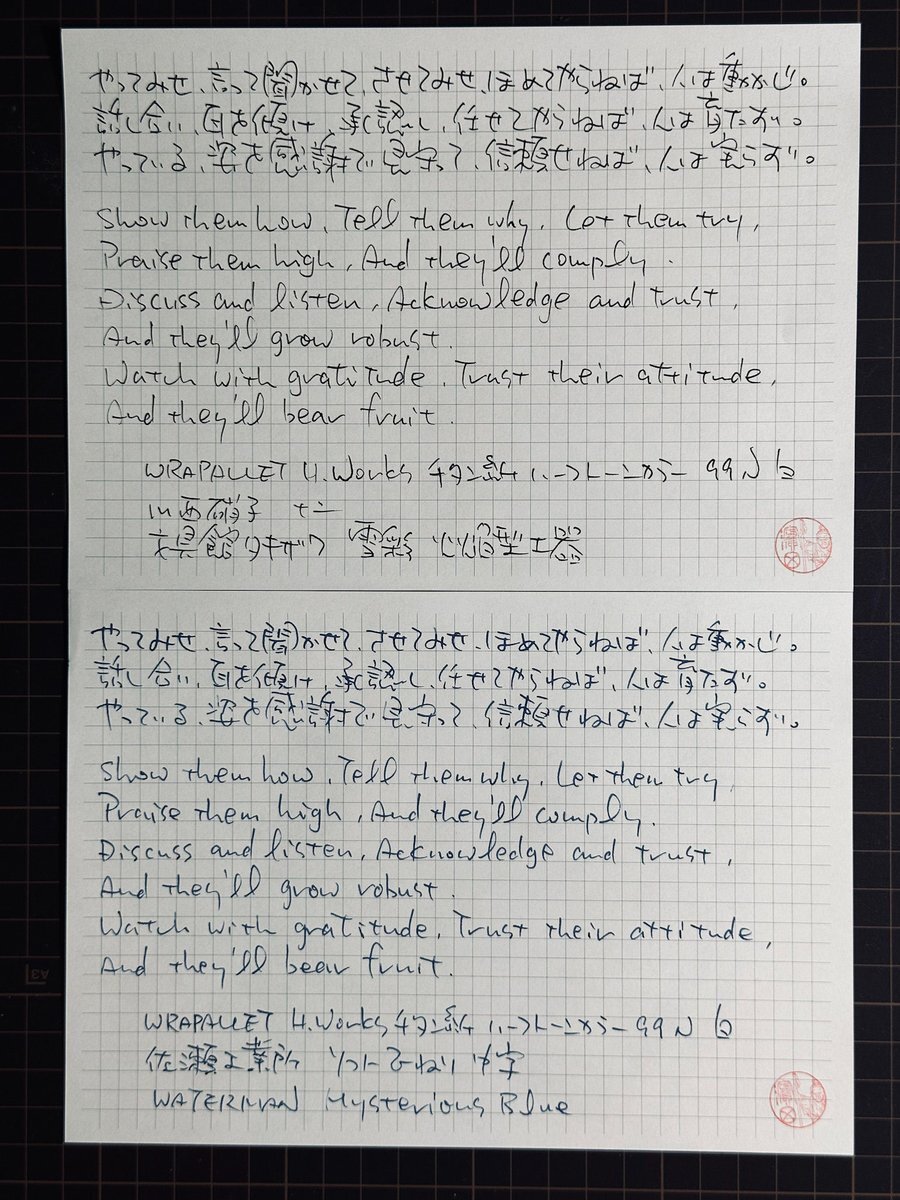 やってみせ、言って聞かせて、させてみせ、ほめてやらねば、人は動かじ。
話し合い、耳を傾け、承認し、任せてやらねば、人は育たず。
やっている、姿を感謝で見守って、信頼せねば、人は実らず。
Show them how, Tell them why, Let them try,
Praise them high, And they'll comply.
Discuss and listen, Acknowledge and trust,
And they'll grow robust.
Watch with gratitude, Trust their attitude,
And they'll bear fruit.
WRAPALLET H.Works チタン紙 ハートニンカラー 99N 白
川西硝子
文具館タキザワ
やってみせ、言って聞かせて、させてみせ、ほめてやらねば、人は動かじ。
話し合い、耳を傾け、承認し、任せてやらねば、人は育たず。
やっている、姿を感謝で見守って、信頼せねば、人は実らず。
Show them how, Tell them why, Let them try
Praise them high, And they'll comply.
Discuss and listen, Acknowledge and trust,
And they'll grow robust.
Watch with gratitude, Trust their attitude,
And they'll bear fruit.
WRAPALLET H.Works チタン紙 ハートニンカラー 99N 白
佐瀬工業所 ソフトひねり 中字
WATERMAN Mysterious Blue
A3